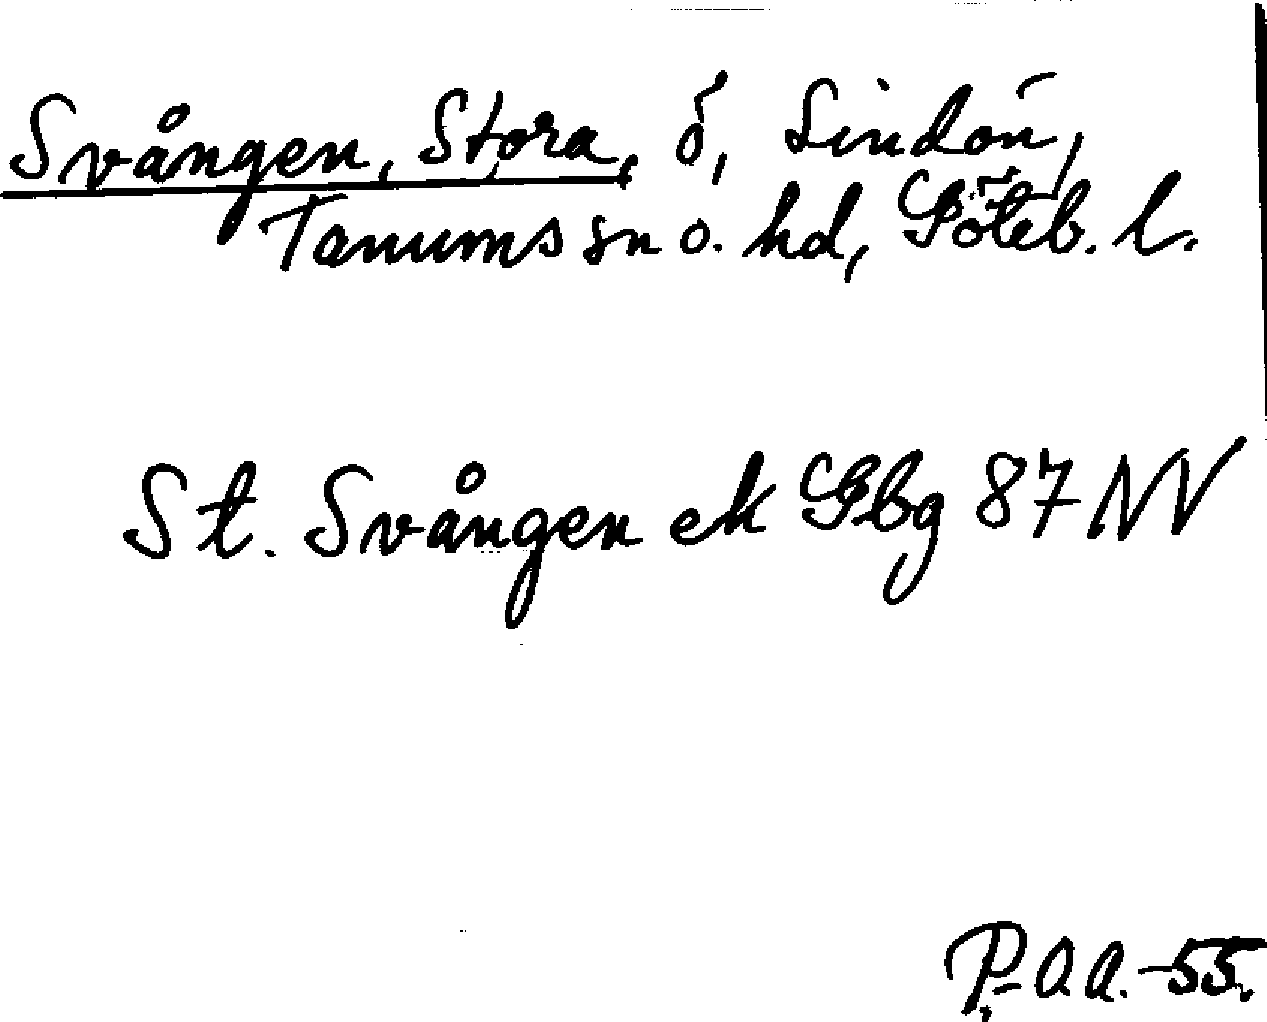 Svången, Stora, ö, Lindön,
Tanums sn o. hd, Göteb. l.
St. Svången ek Gbg 87 NV
P.Å.A.-55.